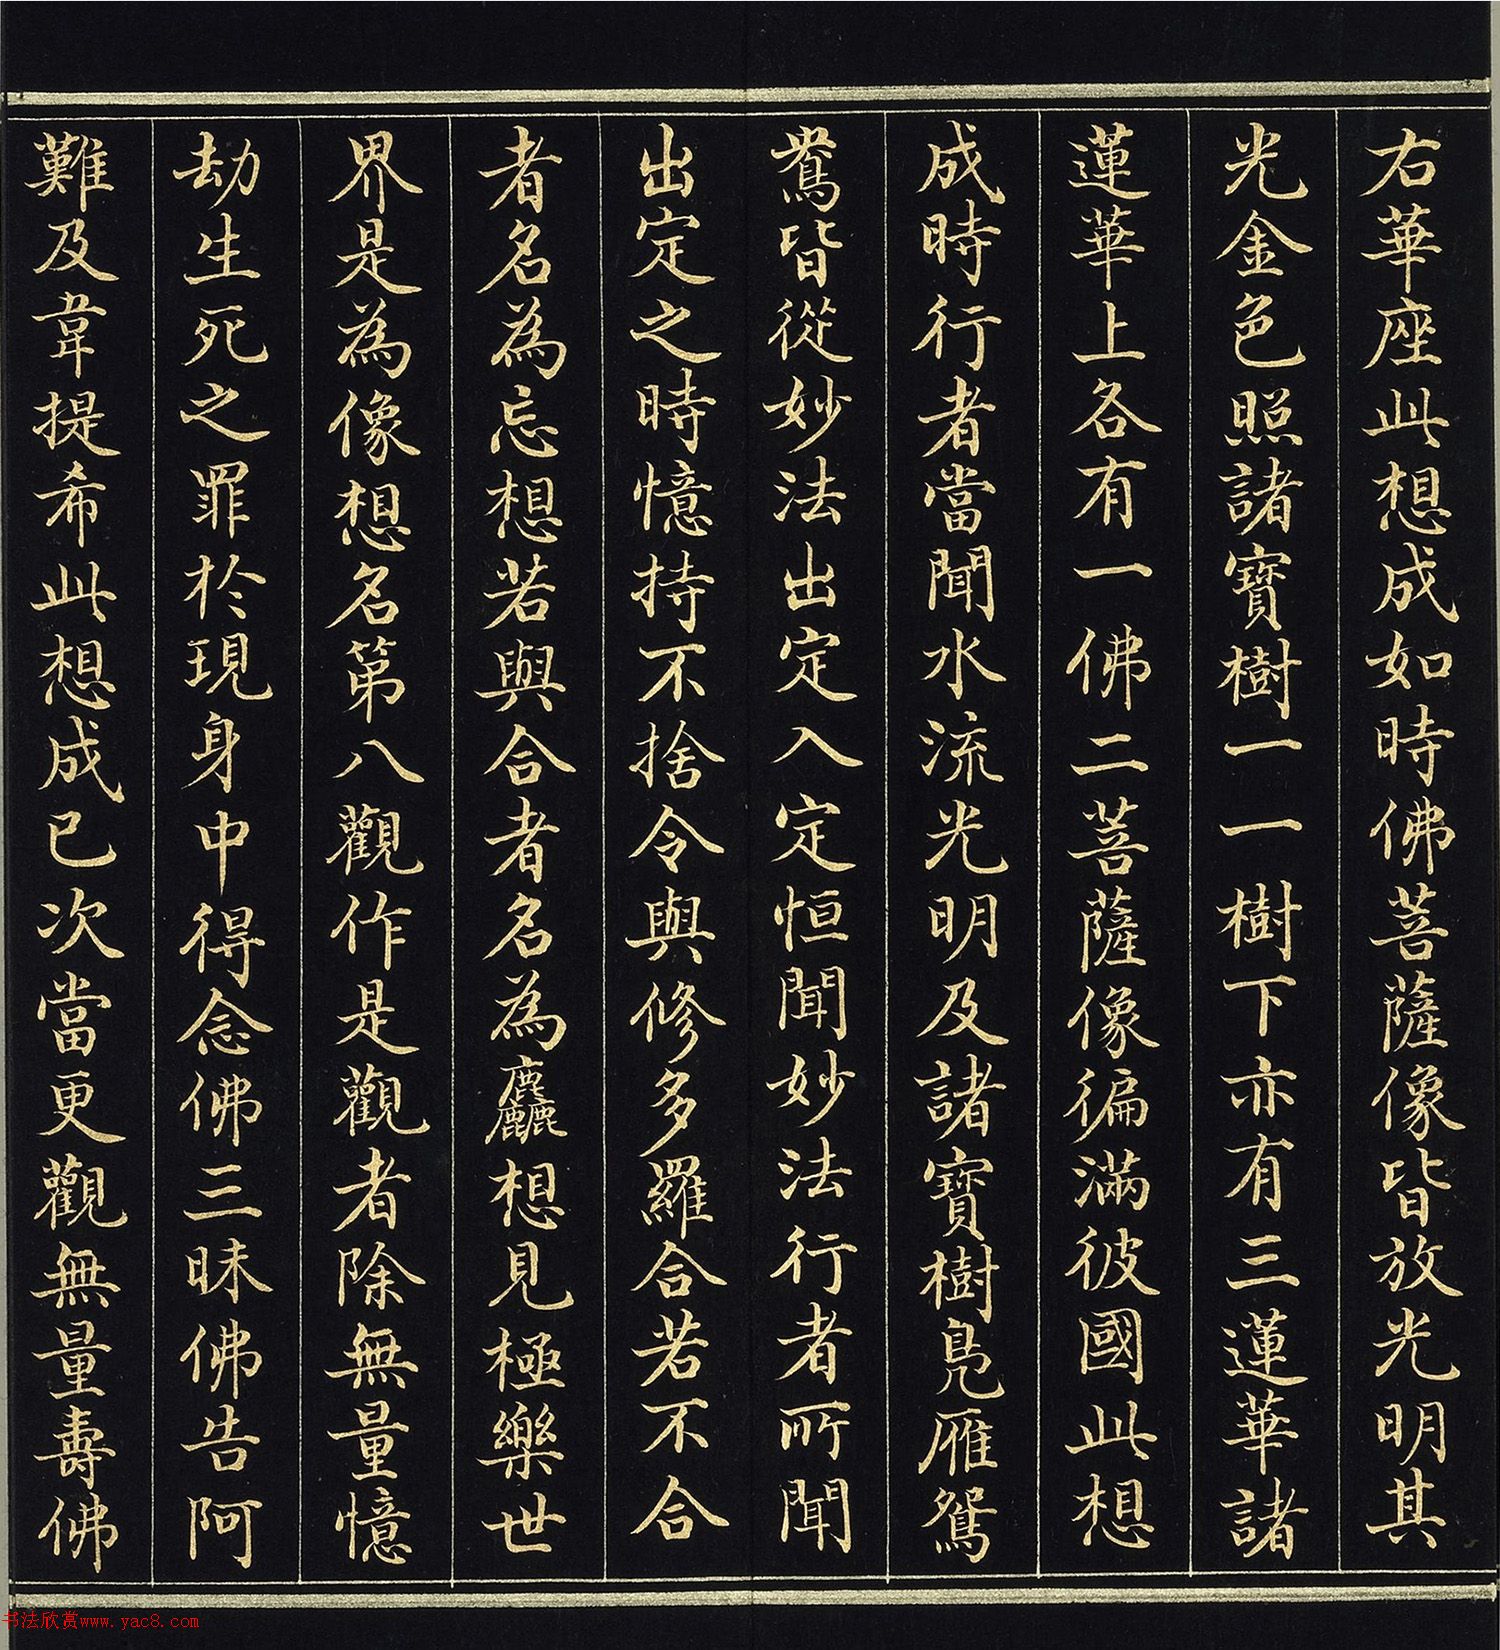 右華座此想成如時佛菩薩像皆放光明其
光金色照諸寶樹一一樹下亦有三蓮華諸
蓮華上各有一佛二菩薩像徧滿彼國此想
成時行者當聞水流光明及諸寶樹鳧雁鴛
鴦皆從妙法出定入定恒聞妙法行者所聞
出定之時憶持不捨令與修多羅合若不合
者名為忘想若與合者名為麤想見極樂世
界是為像想名第八觀作是觀者除無量憶
劫生死之罪於現身中得念佛三昧佛告阿
難及韋提希此想成已次當更觀無量壽佛
书法欣赏www.yac8.com